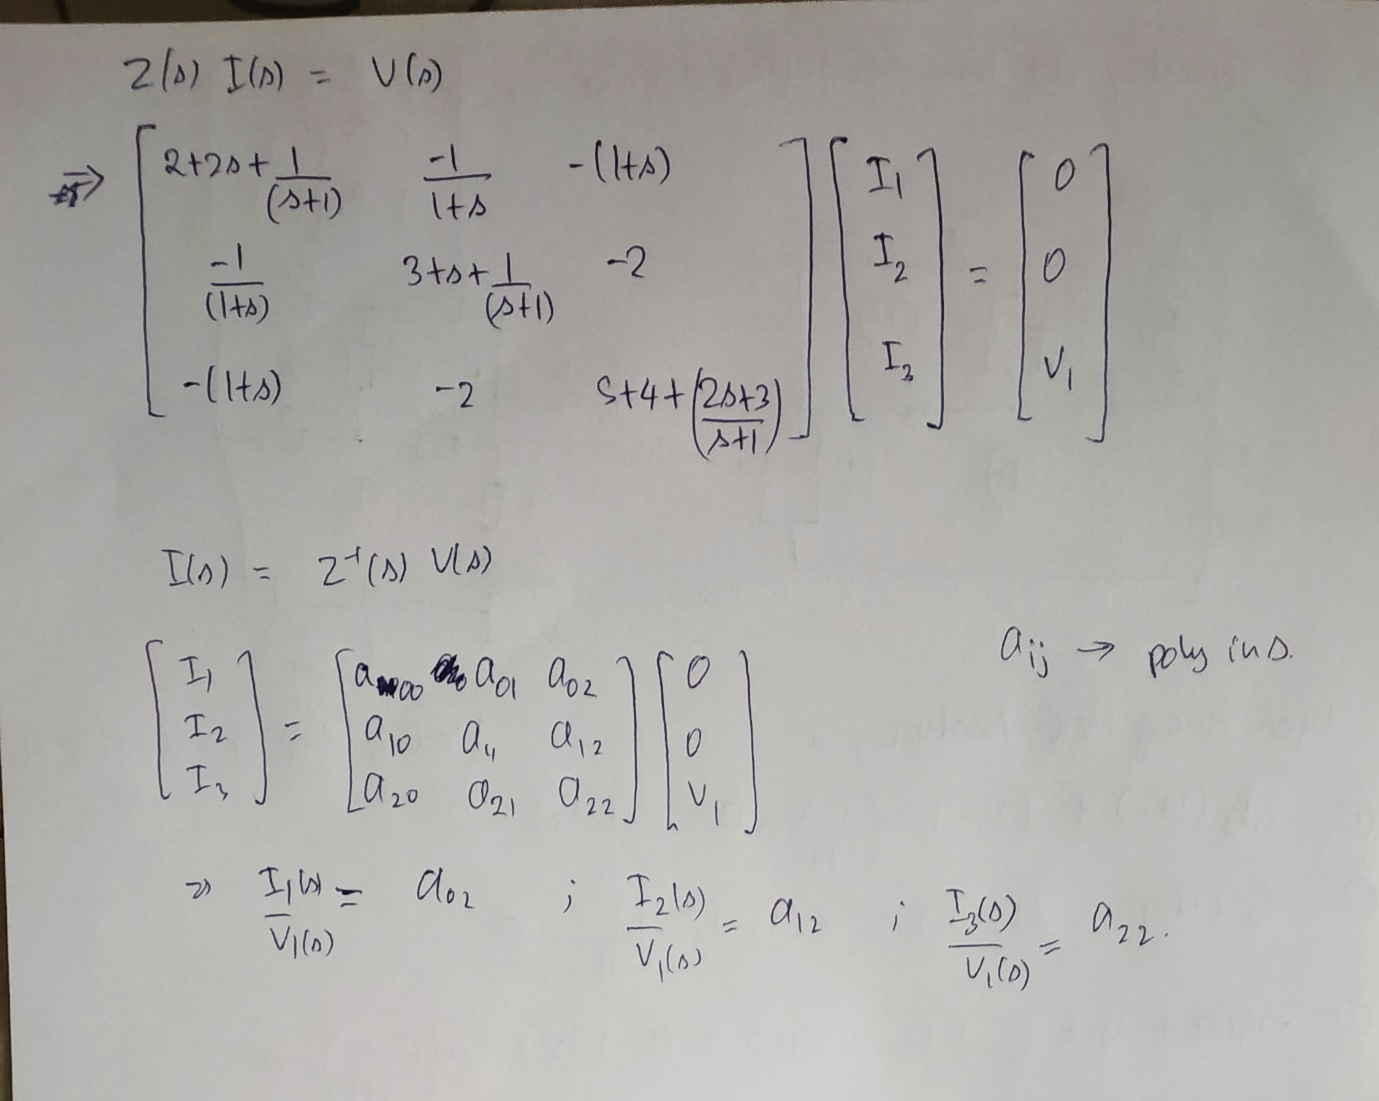 Z(s) I(s) = V(s)
⇒ [ 2+2s+1/(s+1) -1/(1+s) -(1+s) ] [ I₁ ] [ 0 ]
[ -1/(1+s) 3+s+1/(s+1) -2 ] [ I₂ ] = [ 0 ]
[ -(1+s) -2 s+4+(2s+3/s+1) ] [ I₃ ] [ V₁ ]
I(s) = Z⁻¹(s) V(s)
aᵢⱼ → poly in s.
[ I₁ ] [ a₀₀ a₀₁ a₀₂ ] [ 0 ]
[ I₂ ] = [ a₁₀ a₁₁ a₁₂ ] [ 0 ]
[ I₃ ] [ a₂₀ a₂₁ a₂₂ ] [ V₁ ]
⇒ I₁(s)/V₁(s) = a₀₂ ; I₂(s)/V₁(s) = a₁₂ ; I₃(s)/V₁(s) = a₂₂.